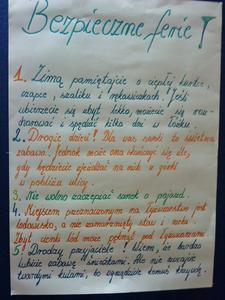 Bezpieczne ferie!
1. Zimą pamiętajcie o ciepłej kurtce,
czapce, szaliku i rękawiczkach. Jeśli
ubierzecie się zbyt lekko, możecie się roz-
chorować i spędzić kilka dni w łóżku.
2. Drogie dzieci! Dla was sanki to świetna
zabawa. Jednak może ona skończyć się źle,
gdy będziecie zjeżdżać na nich z górki
w pobliżu ulicy.
3. Nie wolno zaczepiać sanek o pojazd.
4. Miejscem przeznaczonym na łyżwiarstwo jest
lodowisko, a nie zamarznięty staw i rzeka.
Zbyt cienki lód może pęknąć pod łyżwiarzami.
5. Drodzy przyjaciele! Wiem, że bardzo
lubicie zabawę śnieżkami. Ale nie rzucajcie
twardymi kulami, bo wyrządzicie komuś krzywdę.